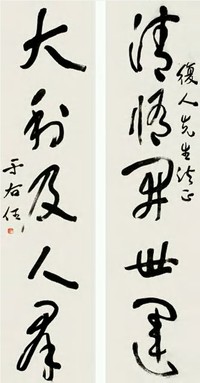 清修開世運
復人先生法正
大利及人群
于右任